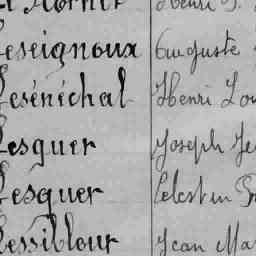 Henri
Leseignoux Auguste
Lesénéchal Henri Lou
Lesquer Joseph Je
Lesquer Celestin
Lessilleur Jean Ma